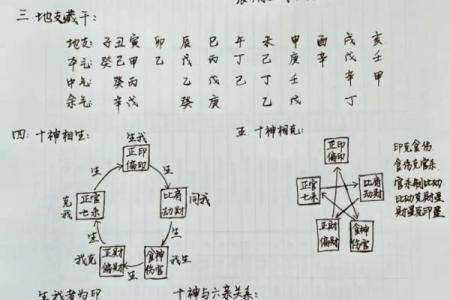 三 地支藏干:
地支: 子 丑 寅 卯 辰 巳 午 未 申 酉 戌 亥
本气: 癸 己 甲 乙 戊 丙 丁 己 庚 辛 戊 壬
中气: 癸 丙 乙 戊 己 丁 壬 辛 甲
余气: 辛 戊 癸 庚 乙 戊 丁
四: 十神相生:
生我
正印
偏印
生
生
正官
七杀
克
我
比肩
劫财
同我
生
生
正财
偏财
我克
生
食神
伤官
我生
五: 十神相克:
正印
偏印
正官
七杀
比肩
劫财
正财
偏财
食神
伤官
印克食伤
食伤克官杀
官杀制比劫
比劫克财星
财星克印星
生我者为印
十神与六亲关系: